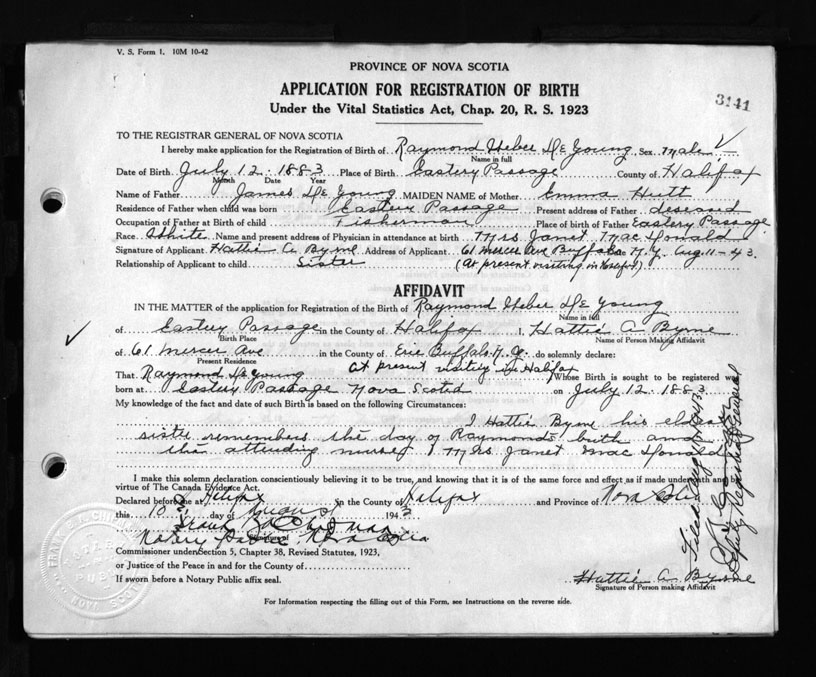 V. S. Form 1. 10M 10-42
PROVINCE OF NOVA SCOTIA
APPLICATION FOR REGISTRATION OF BIRTH
3141
Under the Vital Statistics Act, Chap. 20, R. S. 1923
TO THE REGISTRAR GENERAL OF NOVA SCOTIA
I hereby make application for the Registration of Birth of Raymond Heber De Young, Sex Male
Name in full
Date of Birth July 12 . 1883 Place of Birth Eastern Passage County of Halifax
Month Date Year
Name of Father James De Young MAIDEN NAME of Mother Emma Hutt
Residence of Father when child was born Eastern Passage Present address of Father deseased
Occupation of Father at Birth of child Fisherman Place of birth of Father Eastern Passage
Race White Name and present address of Physician in attendance at birth Mrs Janet Mac Donald
Signature of Applicant Hattie A Byrne Address of Applicant 61 Mercer Ave Buffalo N.Y. Aug 11-43.
Relationship of Applicant to child Sister (At present visiting in Halifax)
AFFIDAVIT
IN THE MATTER of the application for Registration of the Birth of Raymond Heber De Young
Name in full
of Eastern Passage in the County of Halifax I, Hattie A Byrne
Birth Place Name of Person Making Affidavit
of 61 Mercer Ave in the County of Erie Buffalo N.Y. do solemnly declare:
Present Residence at present visiting in Halifax
That Raymond De Young Whose Birth is sought to be registered was
born at Eastern Passage Nova Scotia on July 12 . 1883
My knowledge of the fact and date of such Birth is based on the following Circumstances:
I Hattie Byrne his eldest
sister remembers the day of Raymonds birth and
the attending nurse Mrs Janet Mac Donald
I make this solemn declaration conscientiously believing it to be true, and knowing that it is of the same force and effect as if made under oath and by
virtue of The Canada Evidence Act.
Declared before me at Halifax in the County of Halifax and Province of Nova Scotia
this 10 day of August 1943
Notary Public Nova Scotia
Signature of
Commissioner under Section 5, Chapter 38, Revised Statutes, 1923,
or Justice of the Peace in and for the County of
If sworn before a Notary Public affix seal.
Hattie A. Byrne
Signature of Person making Affidavit
For Information respecting the filling out of this Form, see Instructions on the reverse side.
Filed Aug 1943
Deputy Registrar General